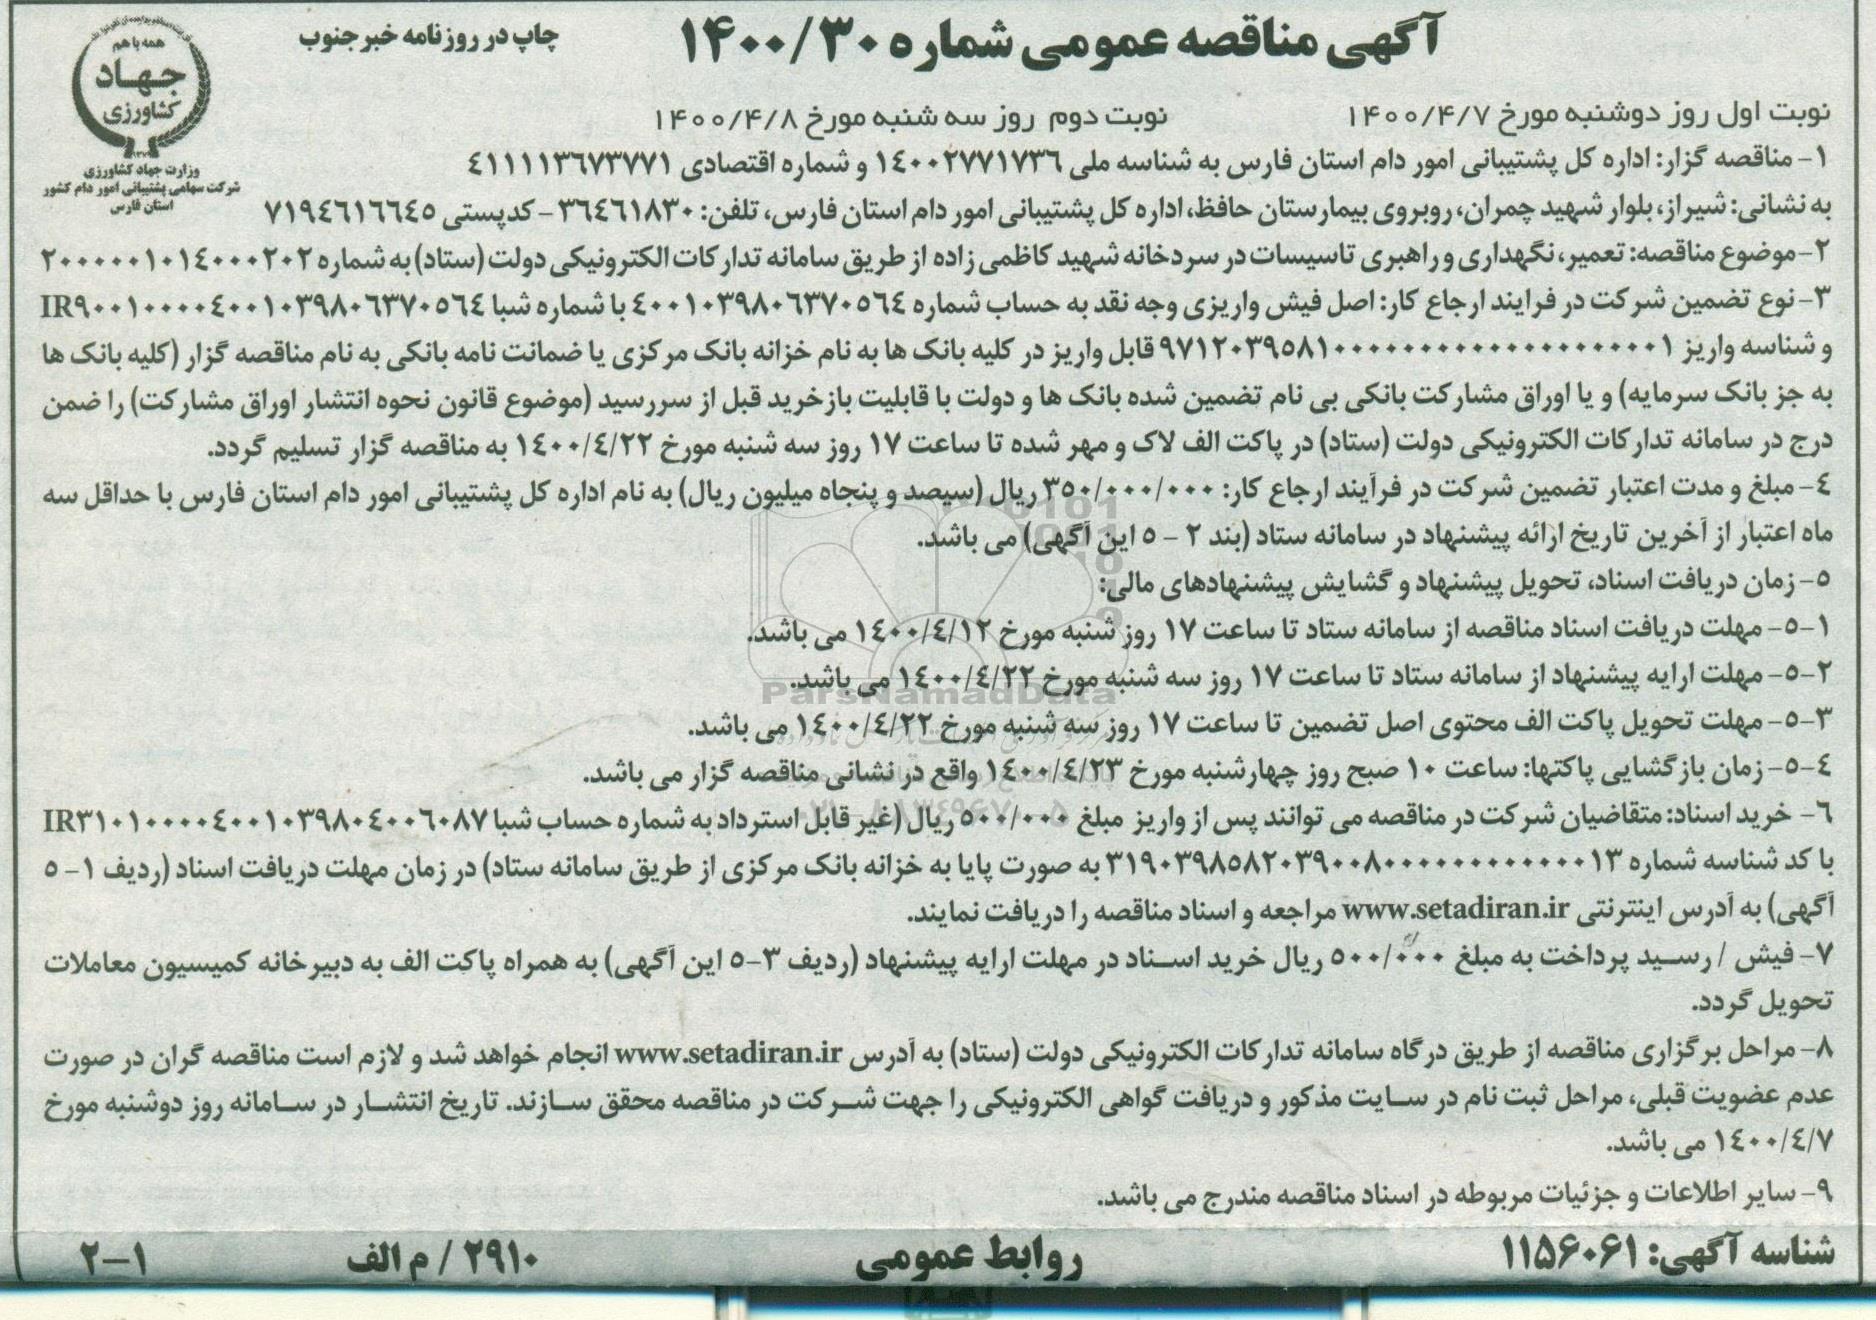 آگهی مناقصه عمومی شماره ۱۴۰۰/۳۰
چاپ در روزنامه خبر جنوب
همه با هم
جهاد
کشاورزی
وزارت جهاد کشاورزی
شرکت سهامی پشتیبانی امور دام کشور
استان فارس
نوبت اول روز دوشنبه مورخ ۱۴۰۰/۴/۷ نوبت دوم روز سه شنبه مورخ ۱۴۰۰/۴/۸
۱- مناقصه گزار: اداره کل پشتیبانی امور دام استان فارس به شناسه ملی ۱۴۰۰۲۷۷۱۷۳۶ و شماره اقتصادی ۴۱۱۱۱۳۶۷۳۷۷۱
به نشانی: شیراز، بلوار شهید چمران، روبروی بیمارستان حافظ، اداره کل پشتیبانی امور دام استان فارس، تلفن: ۳۶۴۶۱۸۳۰ - کدپستی ۷۱۹۴۶۱۶۶۴۵
۲- موضوع مناقصه: تعمیر، نگهداری و راهبری تاسیسات در سردخانه شهید کاظمی زاده از طریق سامانه تدارکات الکترونیکی دولت (ستاد) به شماره ۲۰۰۰۰۰۱۰۱۴۰۰۰۲۰۲
۳- نوع تضمین شرکت در فرایند ارجاع کار: اصل فیش واریزی وجه نقد به حساب شماره ۴۰۰۱۰۳۹۸۰۶۳۷۰۵۶۴ با شماره شبا IR۹۰۰۱۰۰۰۰۴۰۰۱۰۳۹۸۰۶۳۷۰۵۶۴
و شناسه واریز قابل واریز در کلیه بانک ها به نام خزانه بانک مرکزی یا ضمانت نامه بانکی به نام مناقصه گزار (کلیه بانک ها
به جز بانک سرمایه) و یا اوراق مشارکت بانکی بی نام تضمین شده بانک ها و دولت با قابلیت بازخرید قبل از سررسید (موضوع قانون نحوه انتشار اوراق مشارکت) را ضمن
درج در سامانه تدارکات الکترونیکی دولت (ستاد) در پاکت الف لاک و مهر شده تا ساعت ۱۷ روز سه شنبه مورخ ۱۴۰۰/۴/۲۲ به مناقصه گزار تسلیم گردد.
۴- مبلغ و مدت اعتبار تضمین شرکت در فرآیند ارجاع کار: ۳۵۰/۰۰۰/۰۰۰ ریال (سیصد و پنجاه میلیون ریال) به نام اداره کل پشتیبانی امور دام استان فارس با حداقل سه
ماه اعتبار از آخرین تاریخ ارائه پیشنهاد در سامانه ستاد (بند ۲ - ۵ این آگهی) می باشد.
۵- زمان دریافت اسناد، تحویل پیشنهاد و گشایش پیشنهادهای مالی:
۵-۱- مهلت دریافت اسناد مناقصه از سامانه ستاد تا ساعت ۱۷ روز شنبه مورخ ۱۴۰۰/۴/۱۲ می باشد.
۵-۲- مهلت ارایه پیشنهاد از سامانه ستاد تا ساعت ۱۷ روز سه شنبه مورخ ۱۴۰۰/۴/۲۲ می باشد.
ParsNamadData
۵-۳- مهلت تحویل پاکت الف محتوی اصل تضمین تا ساعت ۱۷ روز سه شنبه مورخ ۱۴۰۰/۴/۲۲ می باشد.
۵-۴- زمان بازگشایی پاکتها: ساعت ۱۰ صبح روز چهارشنبه مورخ ۱۴۰۰/۴/۲۳ واقع در نشانی مناقصه گزار می باشد.
۶- خرید اسناد: متقاضیان شرکت در مناقصه می توانند پس از واریز مبلغ ۵۰۰/۰۰۰ ریال (غیر قابل استرداد به شماره حساب شبا IR۳۱۰۱۰۰۰۰۴۰۰۱۰۳۹۸۰۴۰۰۶۰۸۷
با کد شناسه شماره به صورت پایا به خزانه بانک مرکزی از طریق سامانه ستاد) در زمان مهلت دریافت اسناد (ردیف ۱- ۵
آگهی) به آدرس اینترنتی www.setadiran.ir مراجعه و اسناد مناقصه را دریافت نمایند.
۷- فیش / رسید پرداخت به مبلغ ۵۰۰/۰۰۰ ریال خرید اسناد در مهلت ارایه پیشنهاد (ردیف ۳-۵ این آگهی) به همراه پاکت الف به دبیرخانه کمیسیون معاملات
تحویل گردد.
۸- مراحل برگزاری مناقصه از طریق درگاه سامانه تدارکات الکترونیکی دولت (ستاد) به آدرس www.setadiran.ir انجام خواهد شد و لازم است مناقصه گران در صورت
عدم عضویت قبلی، مراحل ثبت نام در سایت مذکور و دریافت گواهی الکترونیکی را جهت شرکت در مناقصه محقق سازند. تاریخ انتشار در سامانه روز دوشنبه مورخ
۱۴۰۰/۴/۷ می باشد.
۹- سایر اطلاعات و جزئیات مربوطه در اسناد مناقصه مندرج می باشد.
شناسه آگهی: ۱۱۵۶۰۶۱ روابط عمومی ۲۹۱۰ / م الف ۲-۱